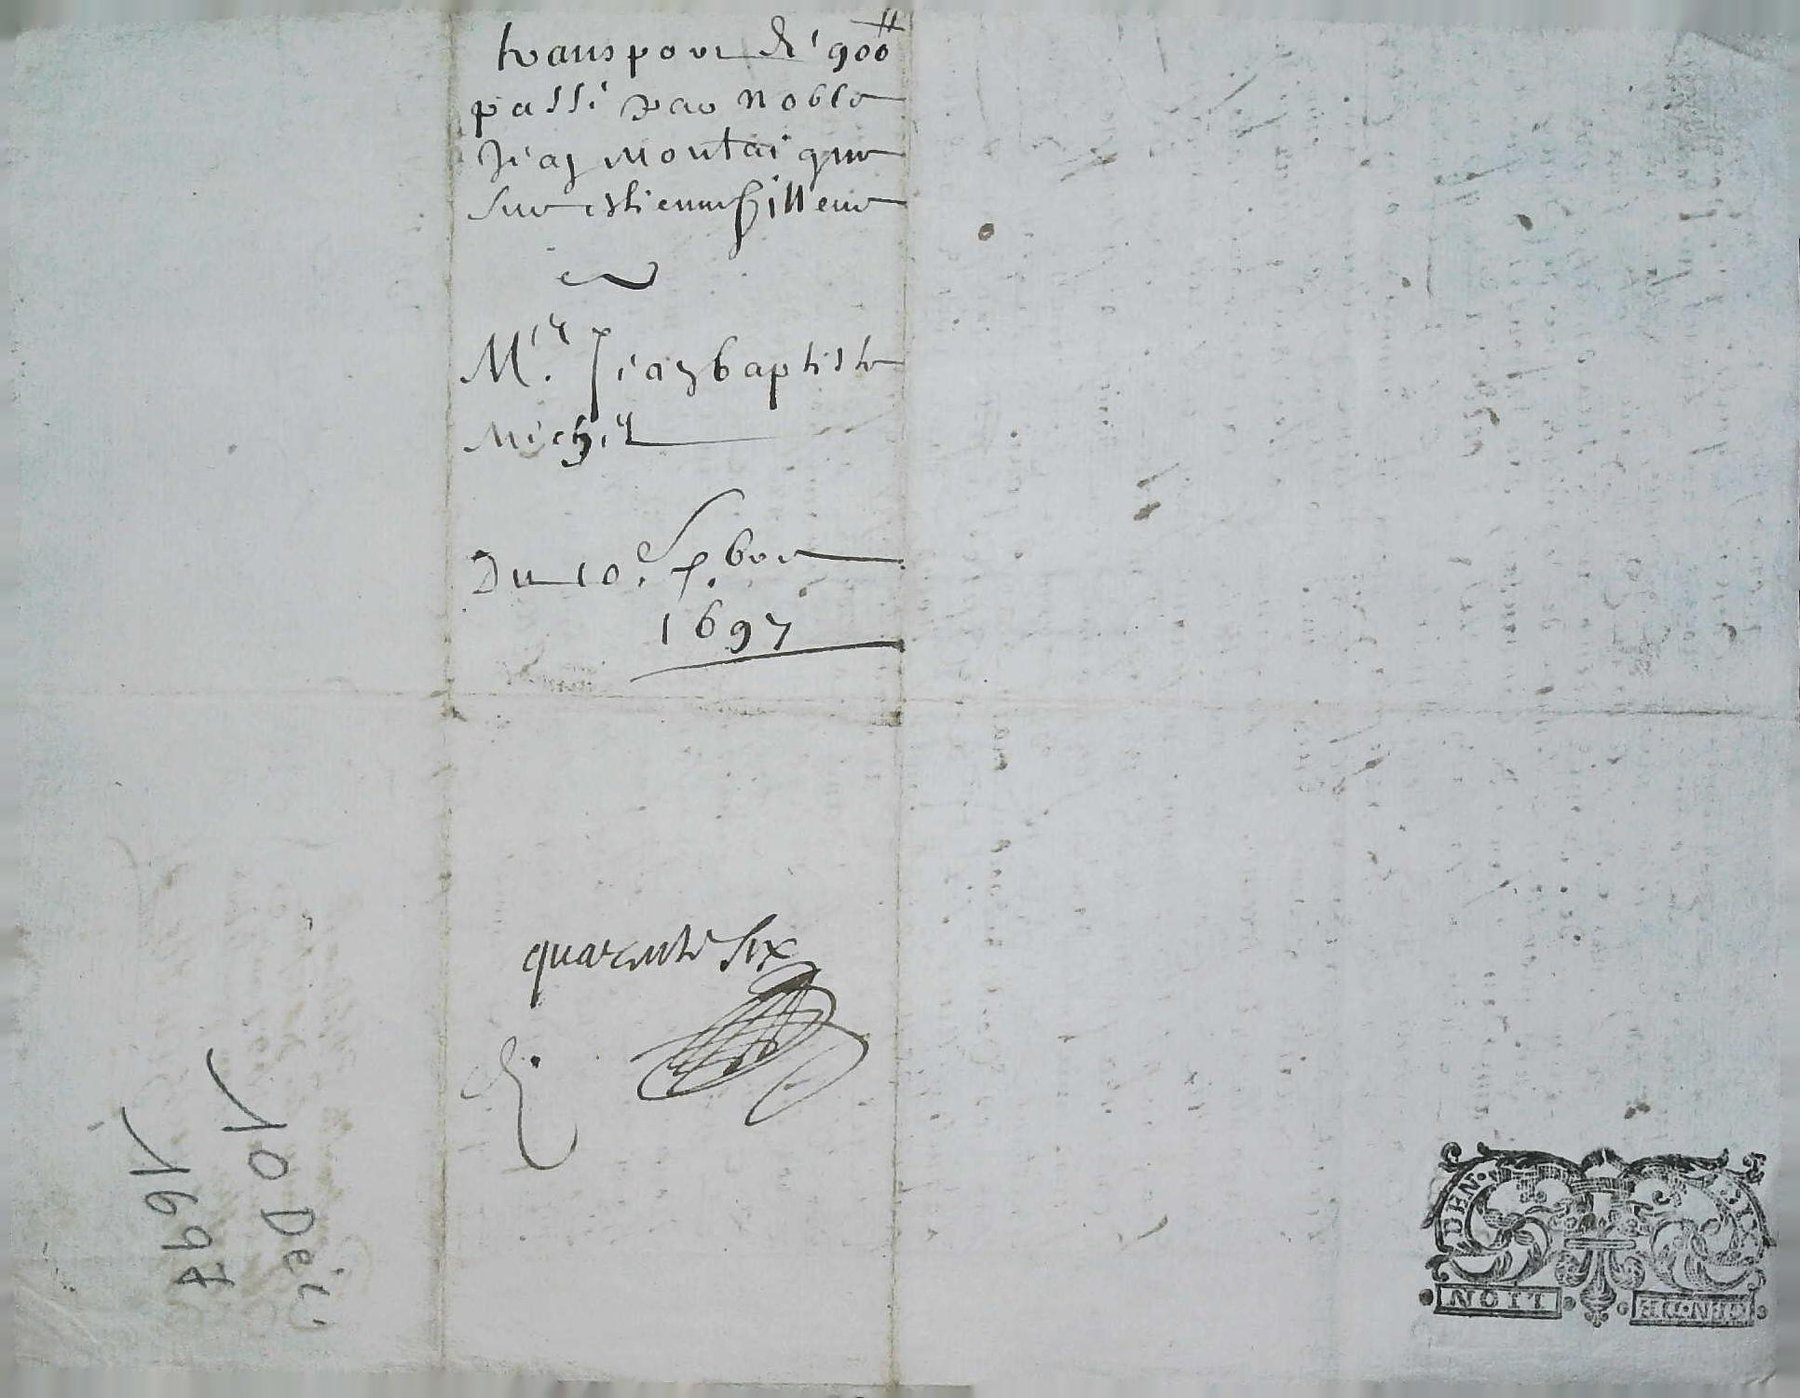 transport de 900 ₶
passé par noble
Jean Montaigne
sur estienne filleur
M.re Jean baptiste
Michel
Du 10.e x.bre
1697
quarente six
10 Dec
1697
DEN. SIX
LION GEN.DE